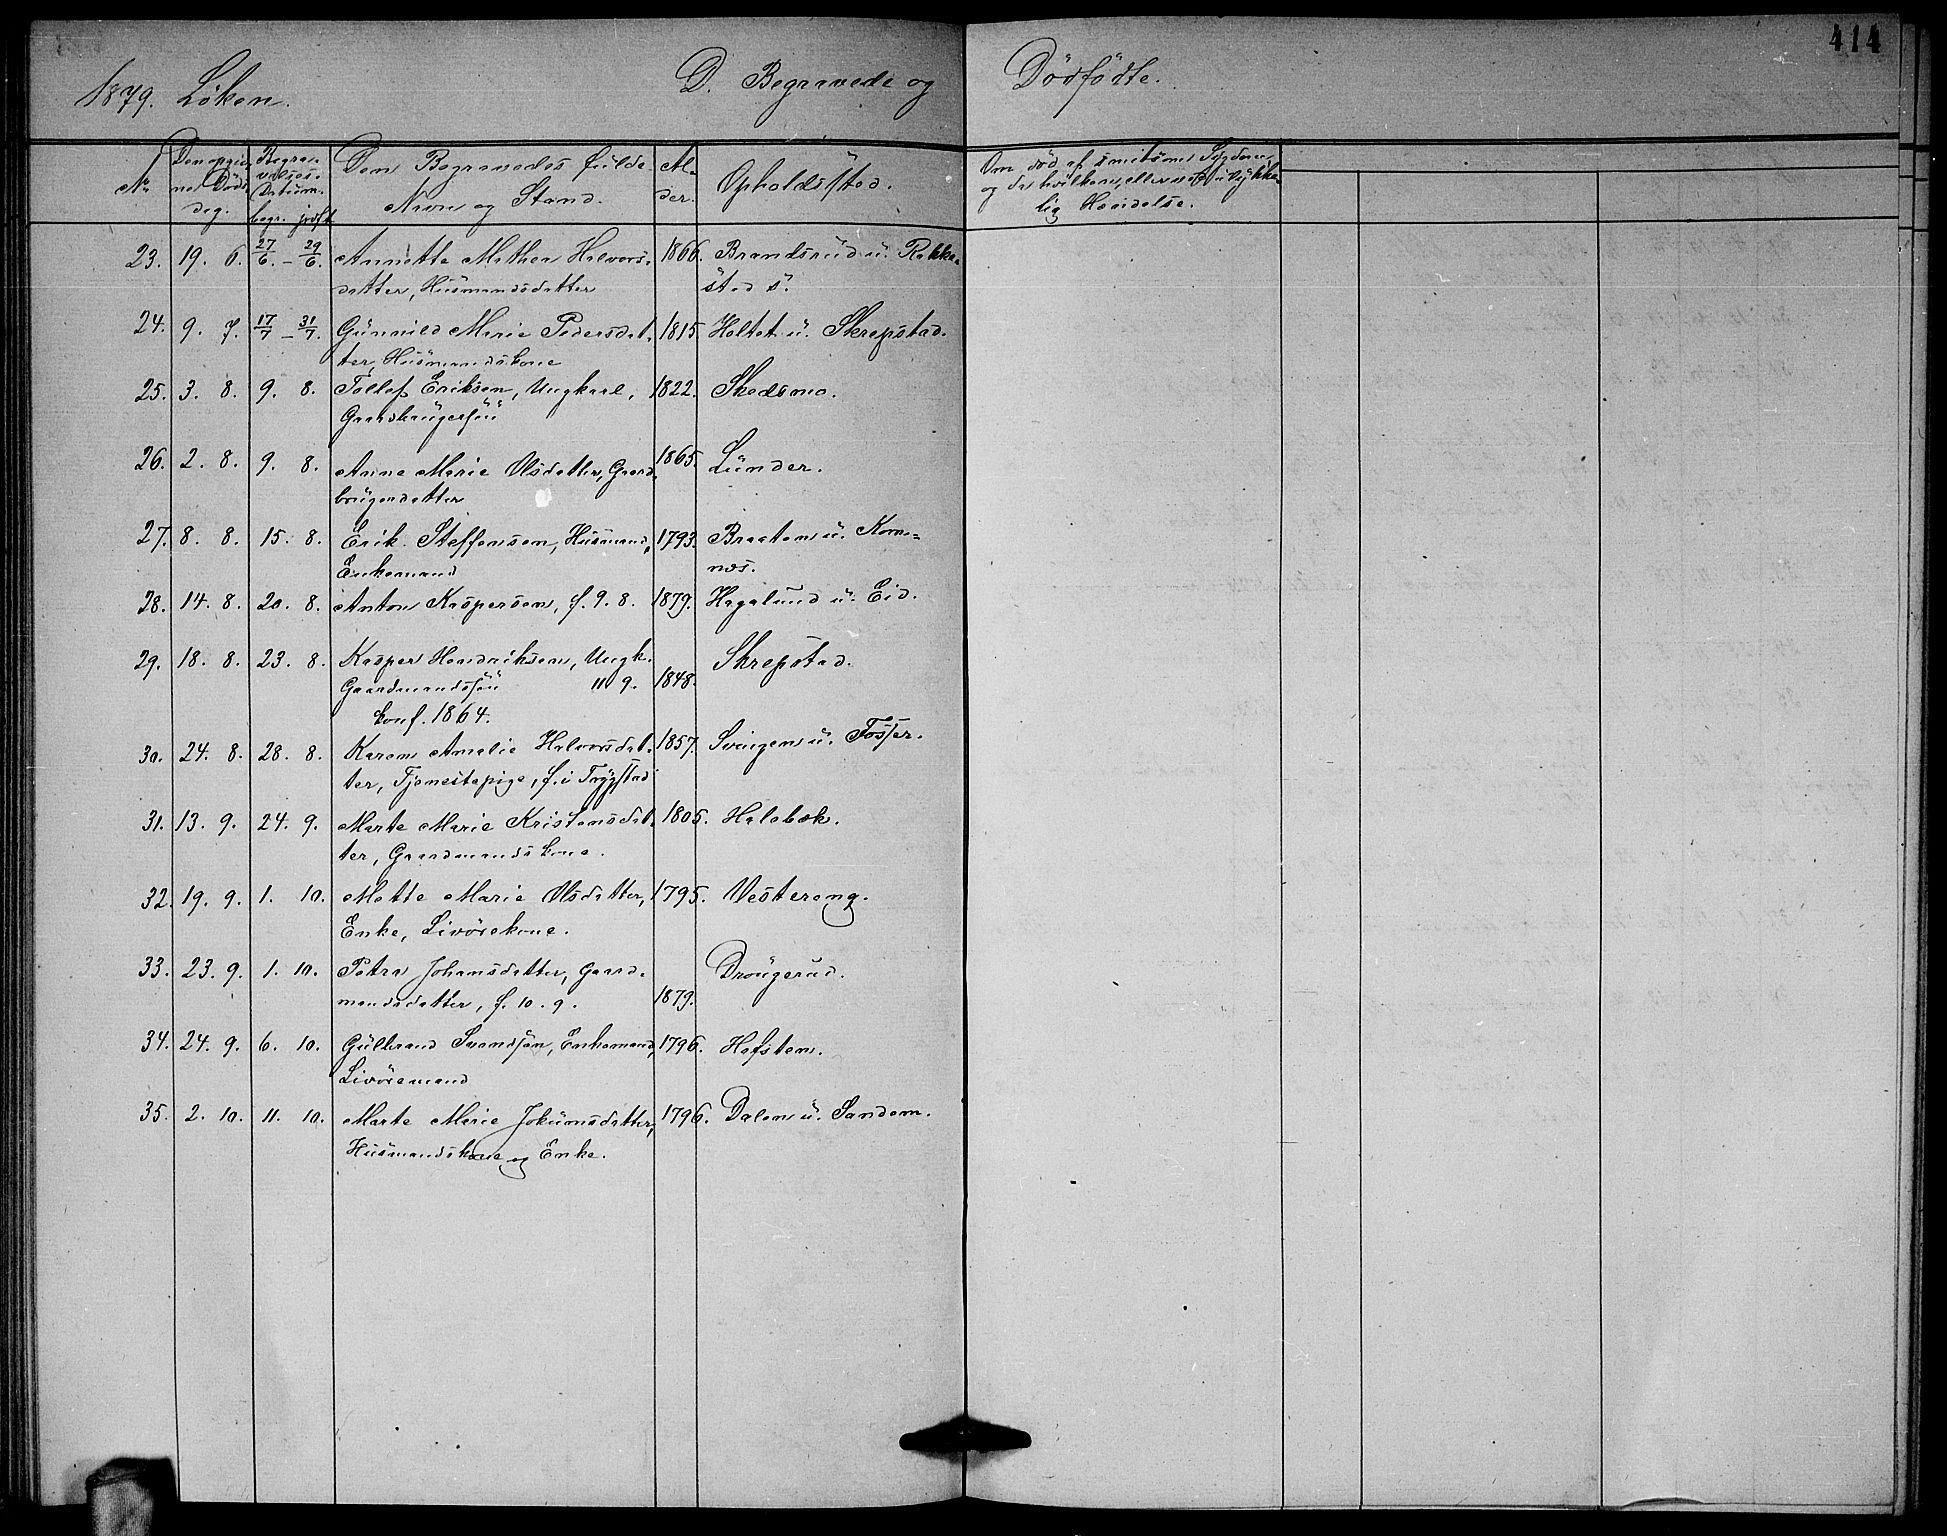 414
1879. Løken. D. Begravede og Dødfødte.
No. Den opgivne Døds dag. Begravelses Datum. begr. jordf. Den Begravedes fulde Navn og Stand. Alder. Opholdssted. Om død af smitsom Sygdom, og da hvilken, eller ved ulykkelig Hændelse.
23. 19. 6. 27/6. – 29/6. Annette Mathea Halvors- 1866. Brandsrud u. Rakke-
datter, Husmandsdatter stad s.
24. 9. 7. 17/7 – 31/7. Gunnild Marie Pedersdat- 1815 Holtet u. Skrepstad.
ter, Husmandskone
25. 3. 8. 9. 8. Tollef Eriksen, Ungkarl, 1822. Skedsmo.
Gaardbrugersøn
26. 2. 8. 9. 8. Anne Marie Olsdatter, Gaard- 1865. Lunder.
brugerdatter
27. 8. 8. 15. 8. Erik Steffensen, Husmand, 1793. Braaten u. Kom-
Enkemand næs.
28. 14. 8. 20. 8. Anton Kaspersen, f. 9. 8. 1879. Hagalund u. Eid.
29. 18. 8. 23. 8. Kasper Hendriksen, Ungk. Skrepstad.
Gaardmandssøn 11 9. 1848.
konf. 1864.
30. 24. 8. 28. 8. Karen Amalie Halvorsdat- 1857. Svingen u. Fosser.
ter, Tjenestepige, f. i Trygstad
31. 13. 9. 24. 9. Marte Marie Kristensdat- 1805. Halebæk.
ter, Gaardmandskone.
32. 19. 9. 1. 10. Mette Marie Olsdatter, 1795. Vestereng.
Enke, Livørekone.
33. 23. 9. 1. 10. Petra Johansdatter, Gaard- Drougerud.
mandsdatter, f. 10. 9. 1879.
34. 24. 9. 6. 10. Gulbrand Svendsøn, Enkemand, 1796. Hofsten.
Livøremand
35. 2. 10. 11. 10. Marte Marie Jokumsdatter, 1796. Dalen u. Sandem.
Husmandskone og Enke.